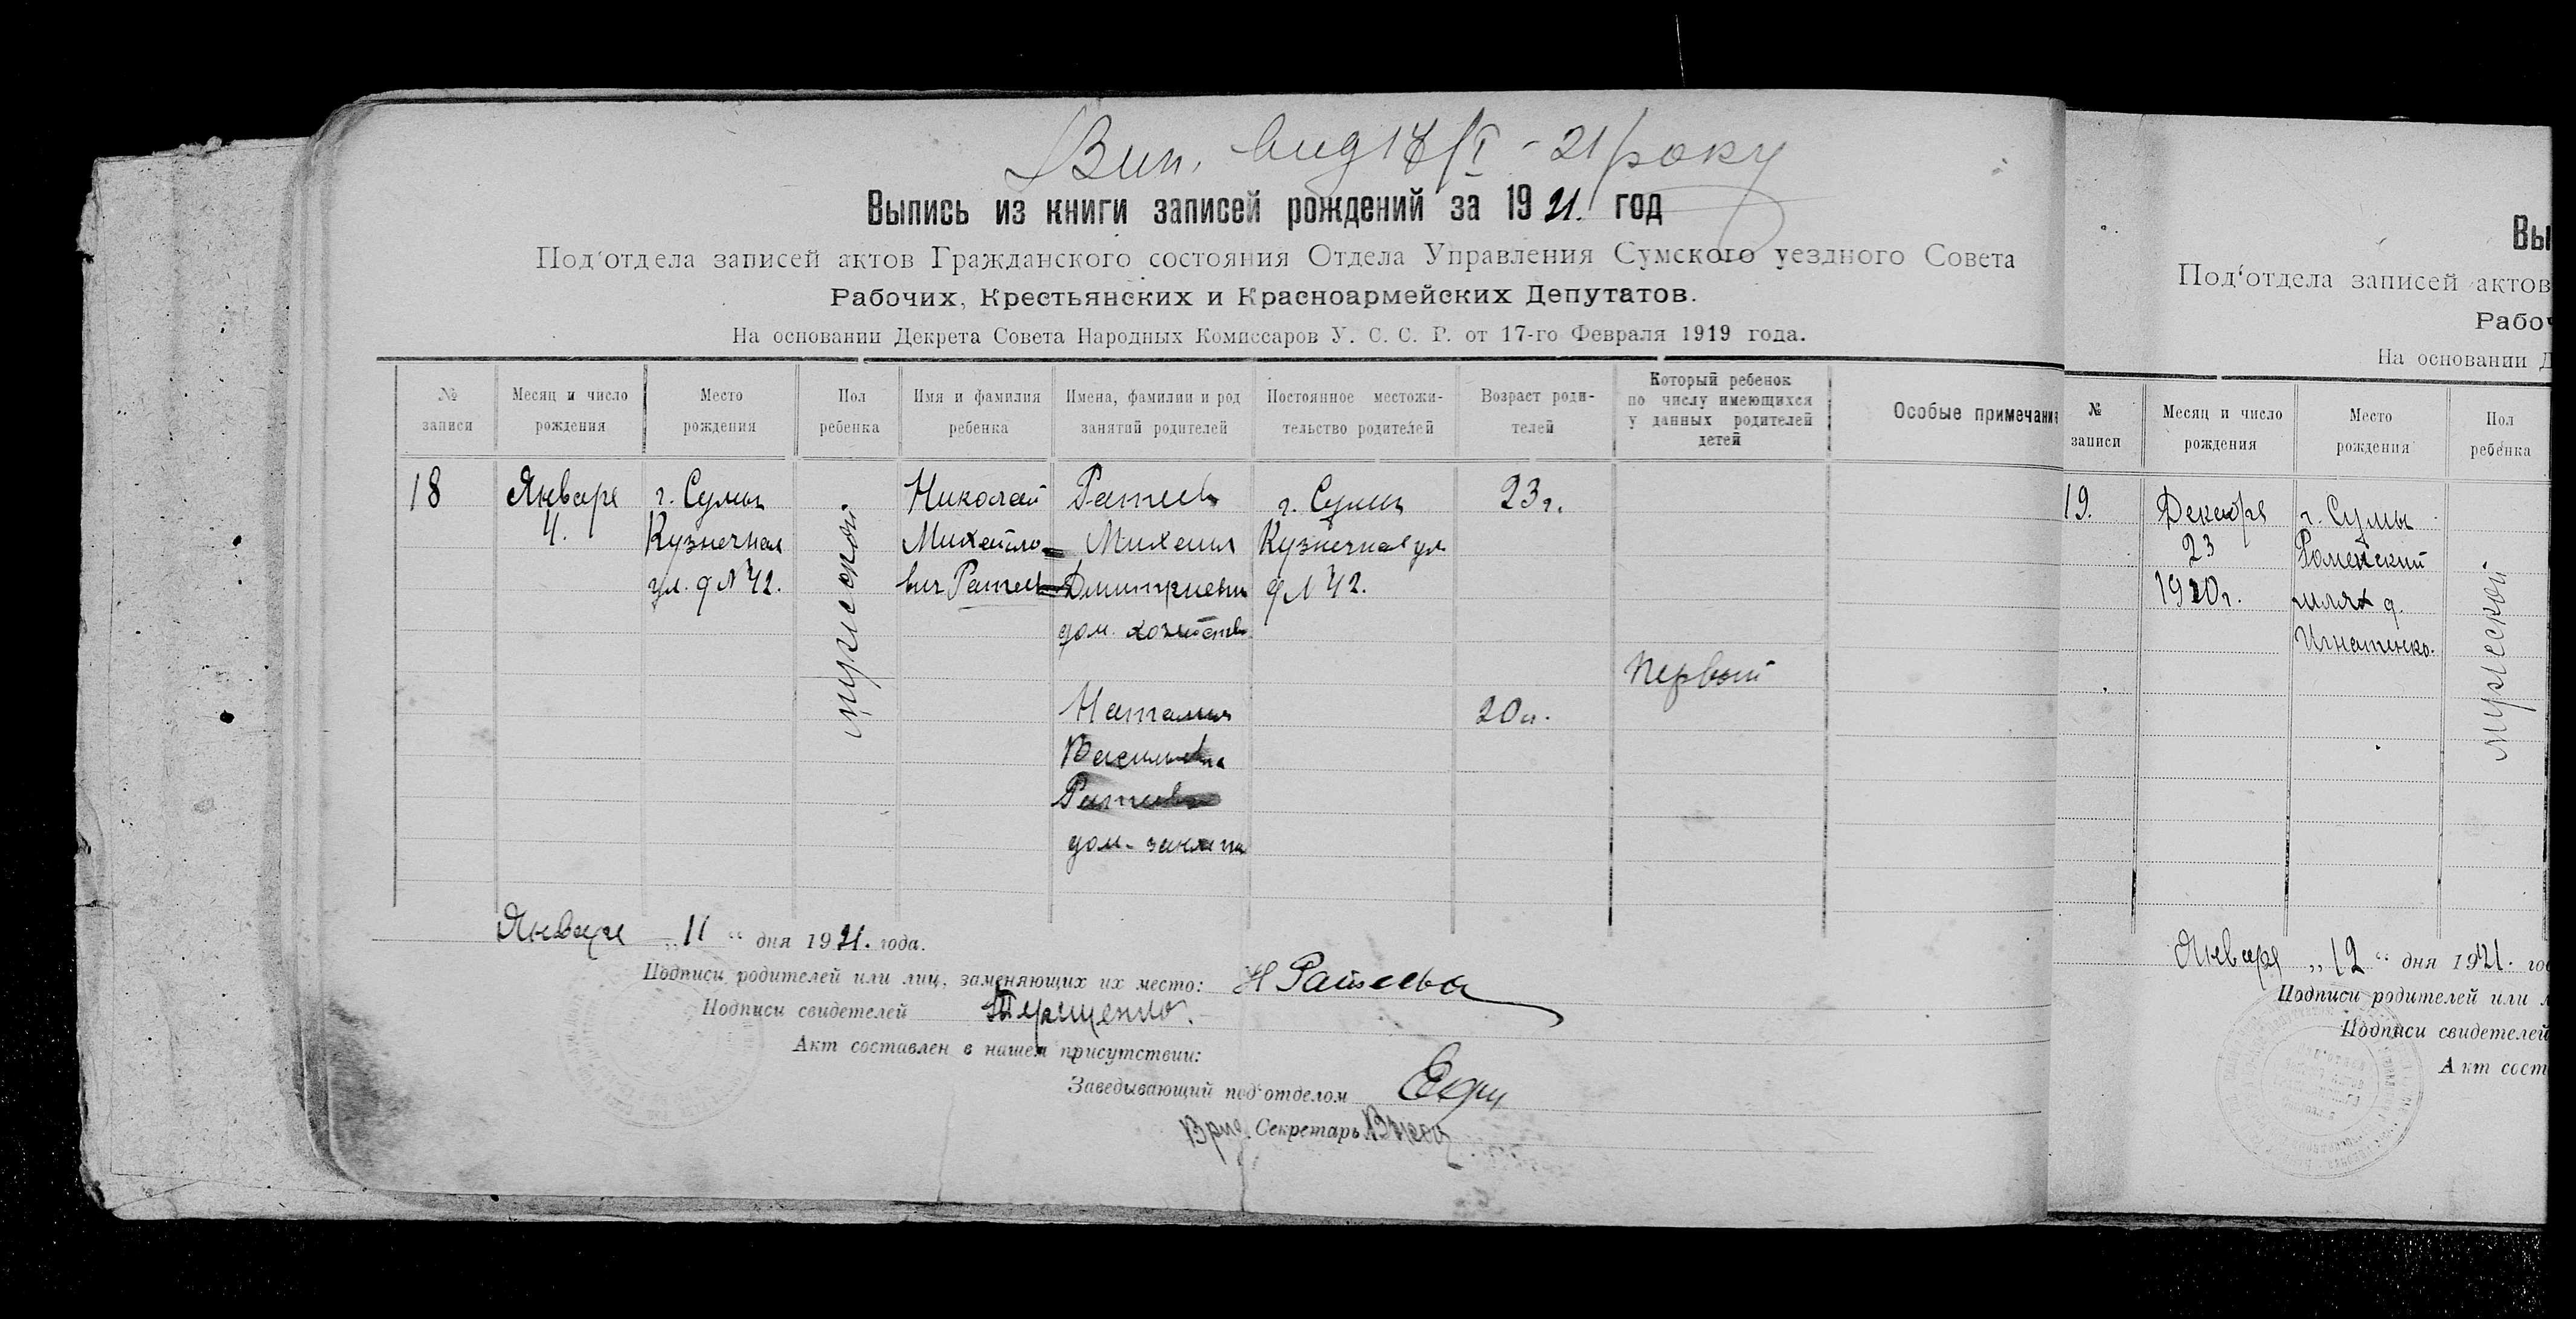 Вип. вид 17/I - 21 року
Выпись из книги записей рождений за 1921. год
Под'отдела записей актов Гражданского состояния Отдела Управления Сумского уездного Совета
Рабочих, Крестьянских и Красноармейских Депутатов.
На основании Декрета Совета Народных Комиссаров У. С. С. Р. от 17-го Февраля 1919 года.
№ записи
Месяц и число рождения
Место рождения
Пол ребенка
Имя и фамилия ребенка
Имена, фамилии и род занятий родителей
Постоянное местожительство родителей
Возраст родителей
Который ребенок по числу имеющихся у данных родителей детей
Особые примечания
18
Января
4.
г. Сумы
Кузнечная
ул. д № 42.
мужской
Николай
Михайло-
вич Ратиев
Ратиев
Михаил
Дмитриевич
дом. хозяйство
Наталия
Васильевна
Ратиева
дом. занятия
г. Сумы
Кузнечная ул
д № 42.
23 г.
20 л.
первый
Января „11“ дня 1921. года.
Подписи родителей или лиц, заменяющих их место: Н Ратиева
Подписи свидетелей Терещенко.
Акт составлен в нашем присутствии:
Заведывающий под'отделом
Секретарь
Вы
Под'отдела записей актов
Рабоч
На основании Д
№ записи
Месяц и число рождения
Место рождения
Пол ребенка
19.
Декабря
23
1920 г.
г. Сумы
Роменский
шлях д.
Игнатенко.
мужской
Января „12“ дня 1921. го
Подписи родителей или л
Подписи свидетелей
Акт сост